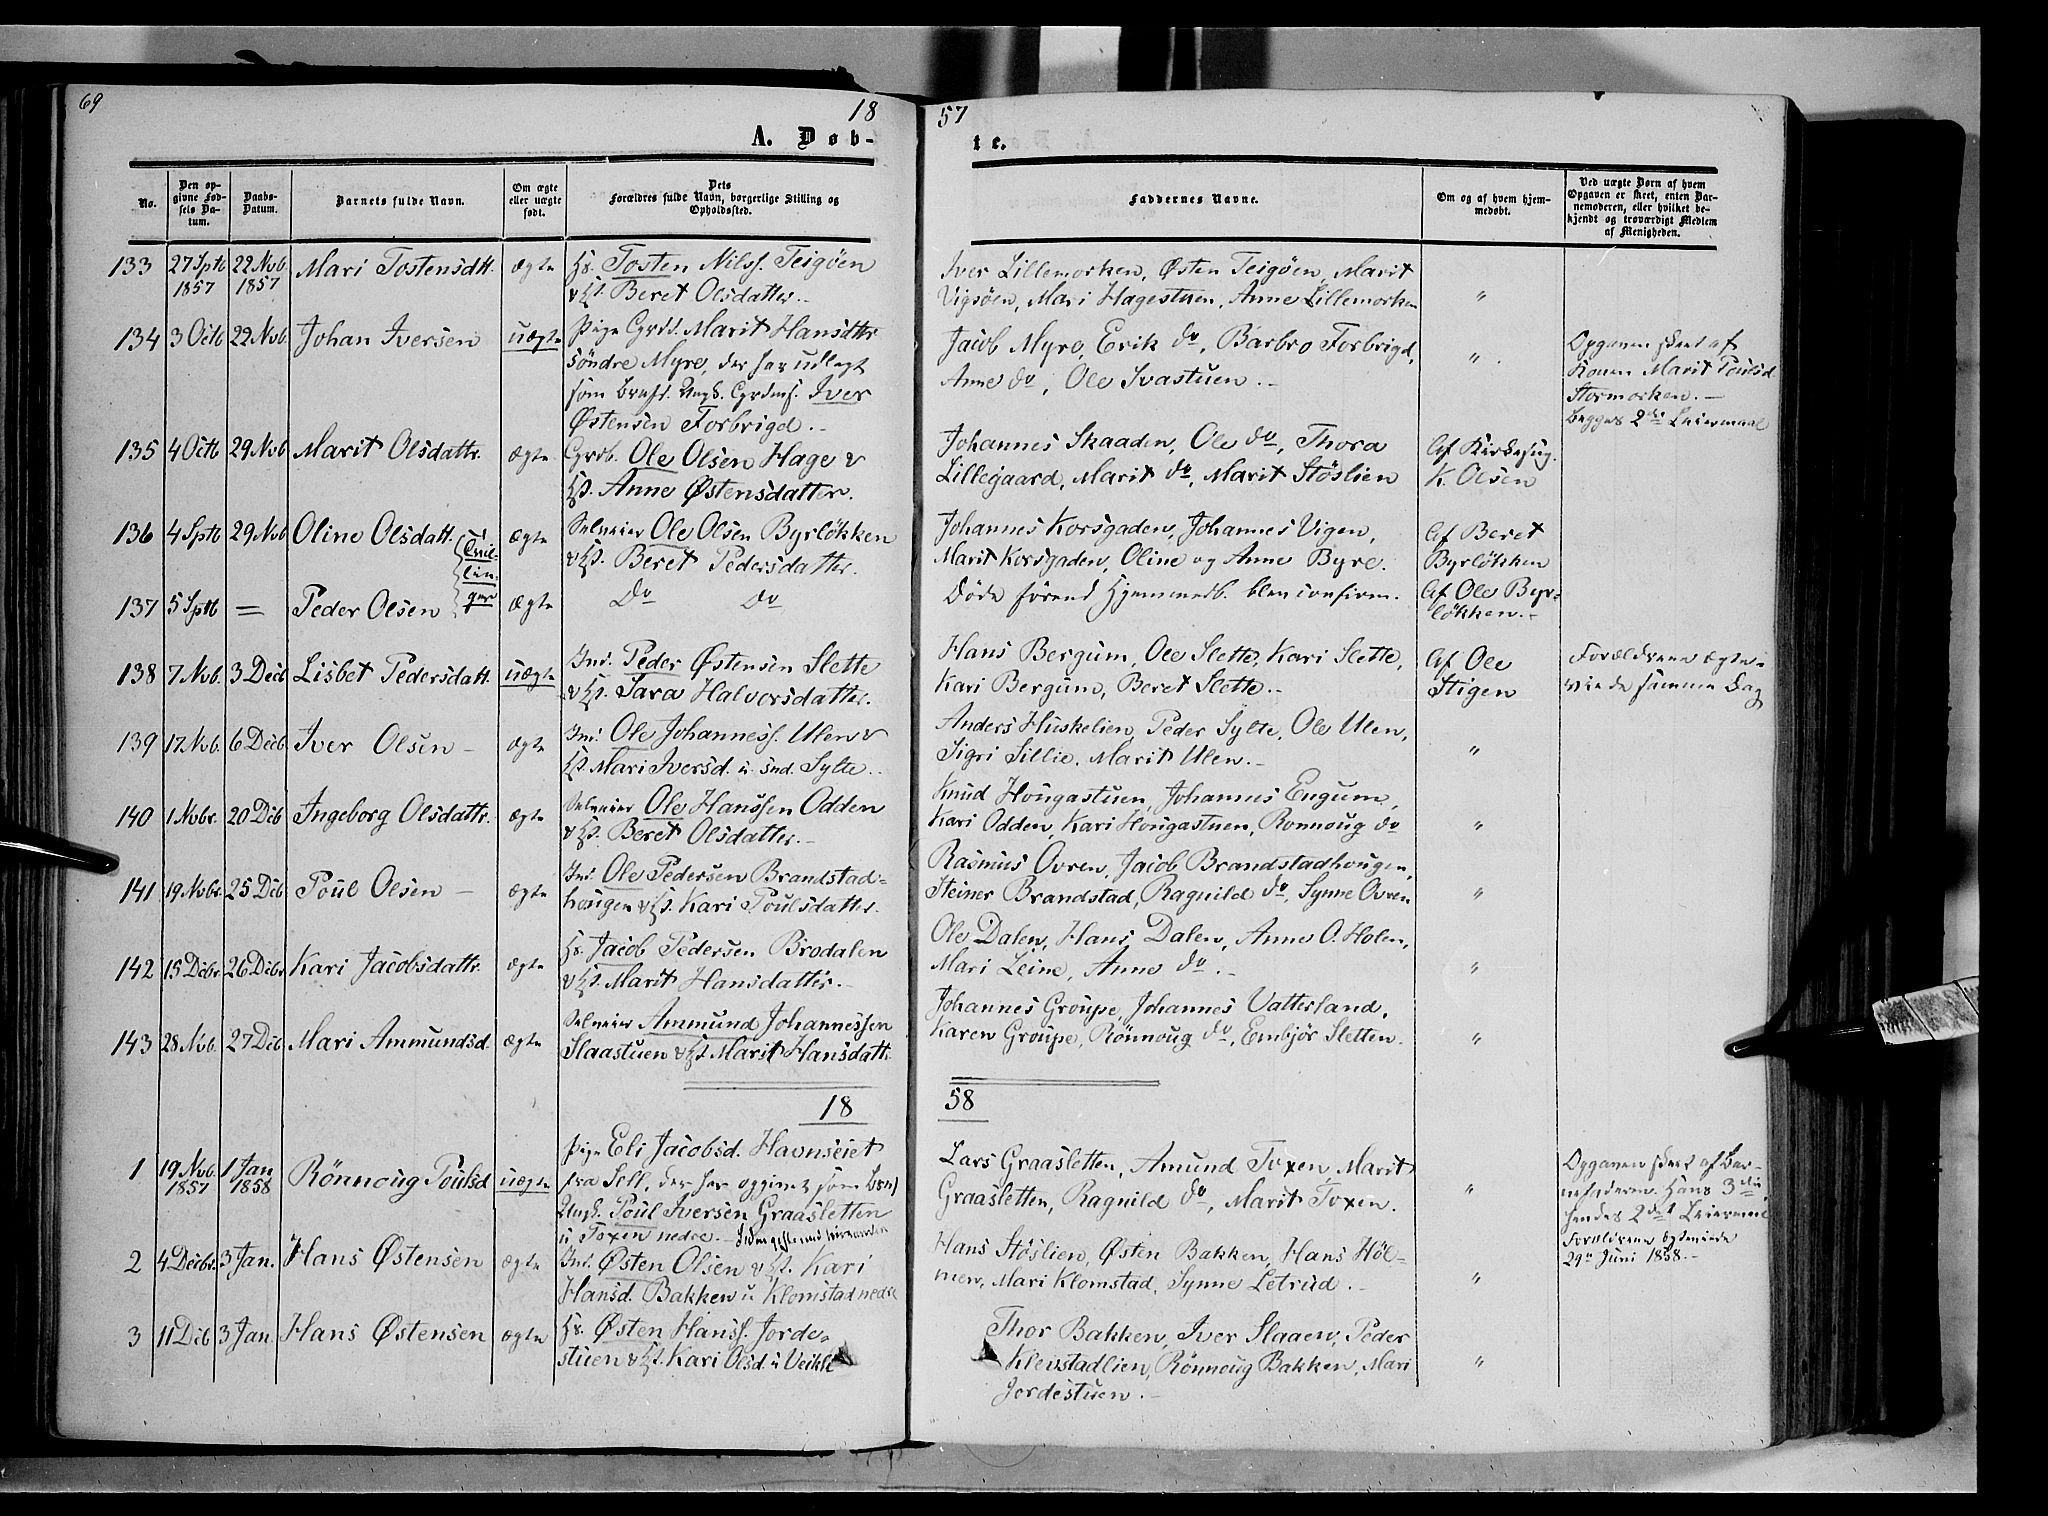 69
18
57
A. Døb-
te.
No.
Den op-
givne Fød-
sels Da-
tum.
Daabs-
Datum.
Barnets fulde Navn.
Om ægte
eller uægte
født.
Dets
Forældres fulde Navn, borgerlige Stilling og
Opholdssted.
Faddernes Navne.
Om og af hvem hjem-
medøbt.
Ved uægte Børn af hvem
Opgaven er skeet, enten Bar-
nemoderen, eller hvilket be-
kjendt og troværdigt Medlem
af Menigheden.
133 27 Sptb 1857 22 Nvb 1857 Mari Tostensdtt. ægte
Hs. Tosten Nilss. Teigöen
& Hst. Beret Olsdatter.
Iver Lillemorken, Østen Teigöen, Marit
Vigsöen, Mari Hagestuen, Anne Lillemorken
"
134 3 Octb 22 Nvb Johan Iversen uægte
Pige Grdd. Marit Hansdttr
söndre Myre, der har udlagt
som Brnfr. Ungk. Grdms. Iver
Østensen Forbrigd.
Jacob Myre, Erik do, Barbro Forbrigd,
Anne do, Ole Svastuen.
"
Opgaven skeet af
Konen Marit Poulsd
Stormorken.
Begges 2det Leiermaal
135 4 Octb 29 Nvb Marit Olsdattr. ægte
Grdb. Ole Olsen Hage &
Hst. Anne Østensdatter.
Johannes Skaaden, Ole do, Thora
Lillegaard, Marit do, Marit Stöslien
Af Kirkesng.
K. Olsen
136 4 Sptb 29 Nvb Oline Olsdatt. ægte
Tvil-
lin-
ger
Selveier Ole Olsen Byrlökken
& Hst. Beret Pedersdatter.
Johannes Korsgaden, Johannes Vigen,
Marit Korsgaden, Oline og Anne Byre.
Af Beret
Byrlökken
137 5 Sptb = Peder Olsen ægte
Do Do
Döde förend Hjemmedb. blev confirm.
Af Ole Byr-
lökken.
138 7 Nvb. 3 Decb Lisbet Pedersdatt. uægte
Ind. Peder Østensen Slette
& Hst. Sara Halvorsdatter.
Hans Bergum, Ole Slette, Kari Slette,
Kari Bergum, Beret Slette.
Af Ole
Stigen
Forældrene ægte-
viede samme Dag
139 17 Nvb. 6 Decb Iver Olsen ægte
Ind. Ole Johanness. Ulen &
Hst. Mari Iversd. u. snd. Sylte.
Anders Huskelien, Peder Sylte, Ole Ulen,
Sigri Sillie, Marit Ulen.
"
140 1 Nvbr. 20 Dcb Ingeborg Olsdattr. ægte
Selveier Ole Hanssen Odden
& Hst. Beret Olsdatter.
Knud Hougastuen, Johannes Engum,
Kari Odden, Kari Hougastuen, Ronnoug do
"
141 19 Nvbr 25 Dcb Poul Olsen ægte
Ind. Ole Pedersen Brandstad-
hougen & Hst. Kari Poulsdatter.
Rasmus Ovren, Jacob Brandstadhougen,
Steiner Brandstad, Ragnild do, Synne Ovren
"
142 15 Dcbr. 26 Dcbr Kari Jacobsdattr. ægte
Hs. Jacob Pedersen Brodalen
& Hst. Marit Hansdatter.
Ole Dalen, Hans Dalen, Anne O. Holen,
Mari Leine, Anne do.
"
143 28 Nvb. 27 Dcb Mari Ammundsd. ægte
Selveier Ammund Johannessen
Slaastuen & Hst. Marit Hansdatt.
Johannes Groupe, Johannes Vatterland,
Karen Groupe, Rönnoug do, Embjör Sletten.
"
18
58
1 19 Nvb. 1857 1 Jan 1858 Rönnoug Poulsd uægte
Pige Eli Jacobsd. Havnseiet
fra Sell, der har opgivet som Brnf
Ungk. Poul Iversen Graasletten
u. Toxen nedre.
Lars Graasletten, Amund Toxen, Marit
Graasletten, Ragnild do, Marit Toxen.
"
Opgaven skeet af Bar-
nefaderen. Hans 3die,
hendes 2det Leiermaal
Forældrene ægteviede
29de Juni 1858.
2 4 Decbr. 3 Jan. Hans Østensen ægte
Ind. Østen Olsen & Hst. Kari
Hansd. Bakken u Klomstad nedre
Hans Stöslien, Østen Bakken, Hans Höl-
men, Mari Klomstad, Synne Letrud.
"
3 11 Dcb 3 Jan. Hans Østensen ægte
Hs. Østen Hanss. Jorde-
stuen & Hst. Kari Olsd. u Veikle
Thor Bakken, Iver Slaaen, Peder
Klevstadlien, Rönnoug Bakken, Mari
Jordestuen.
"